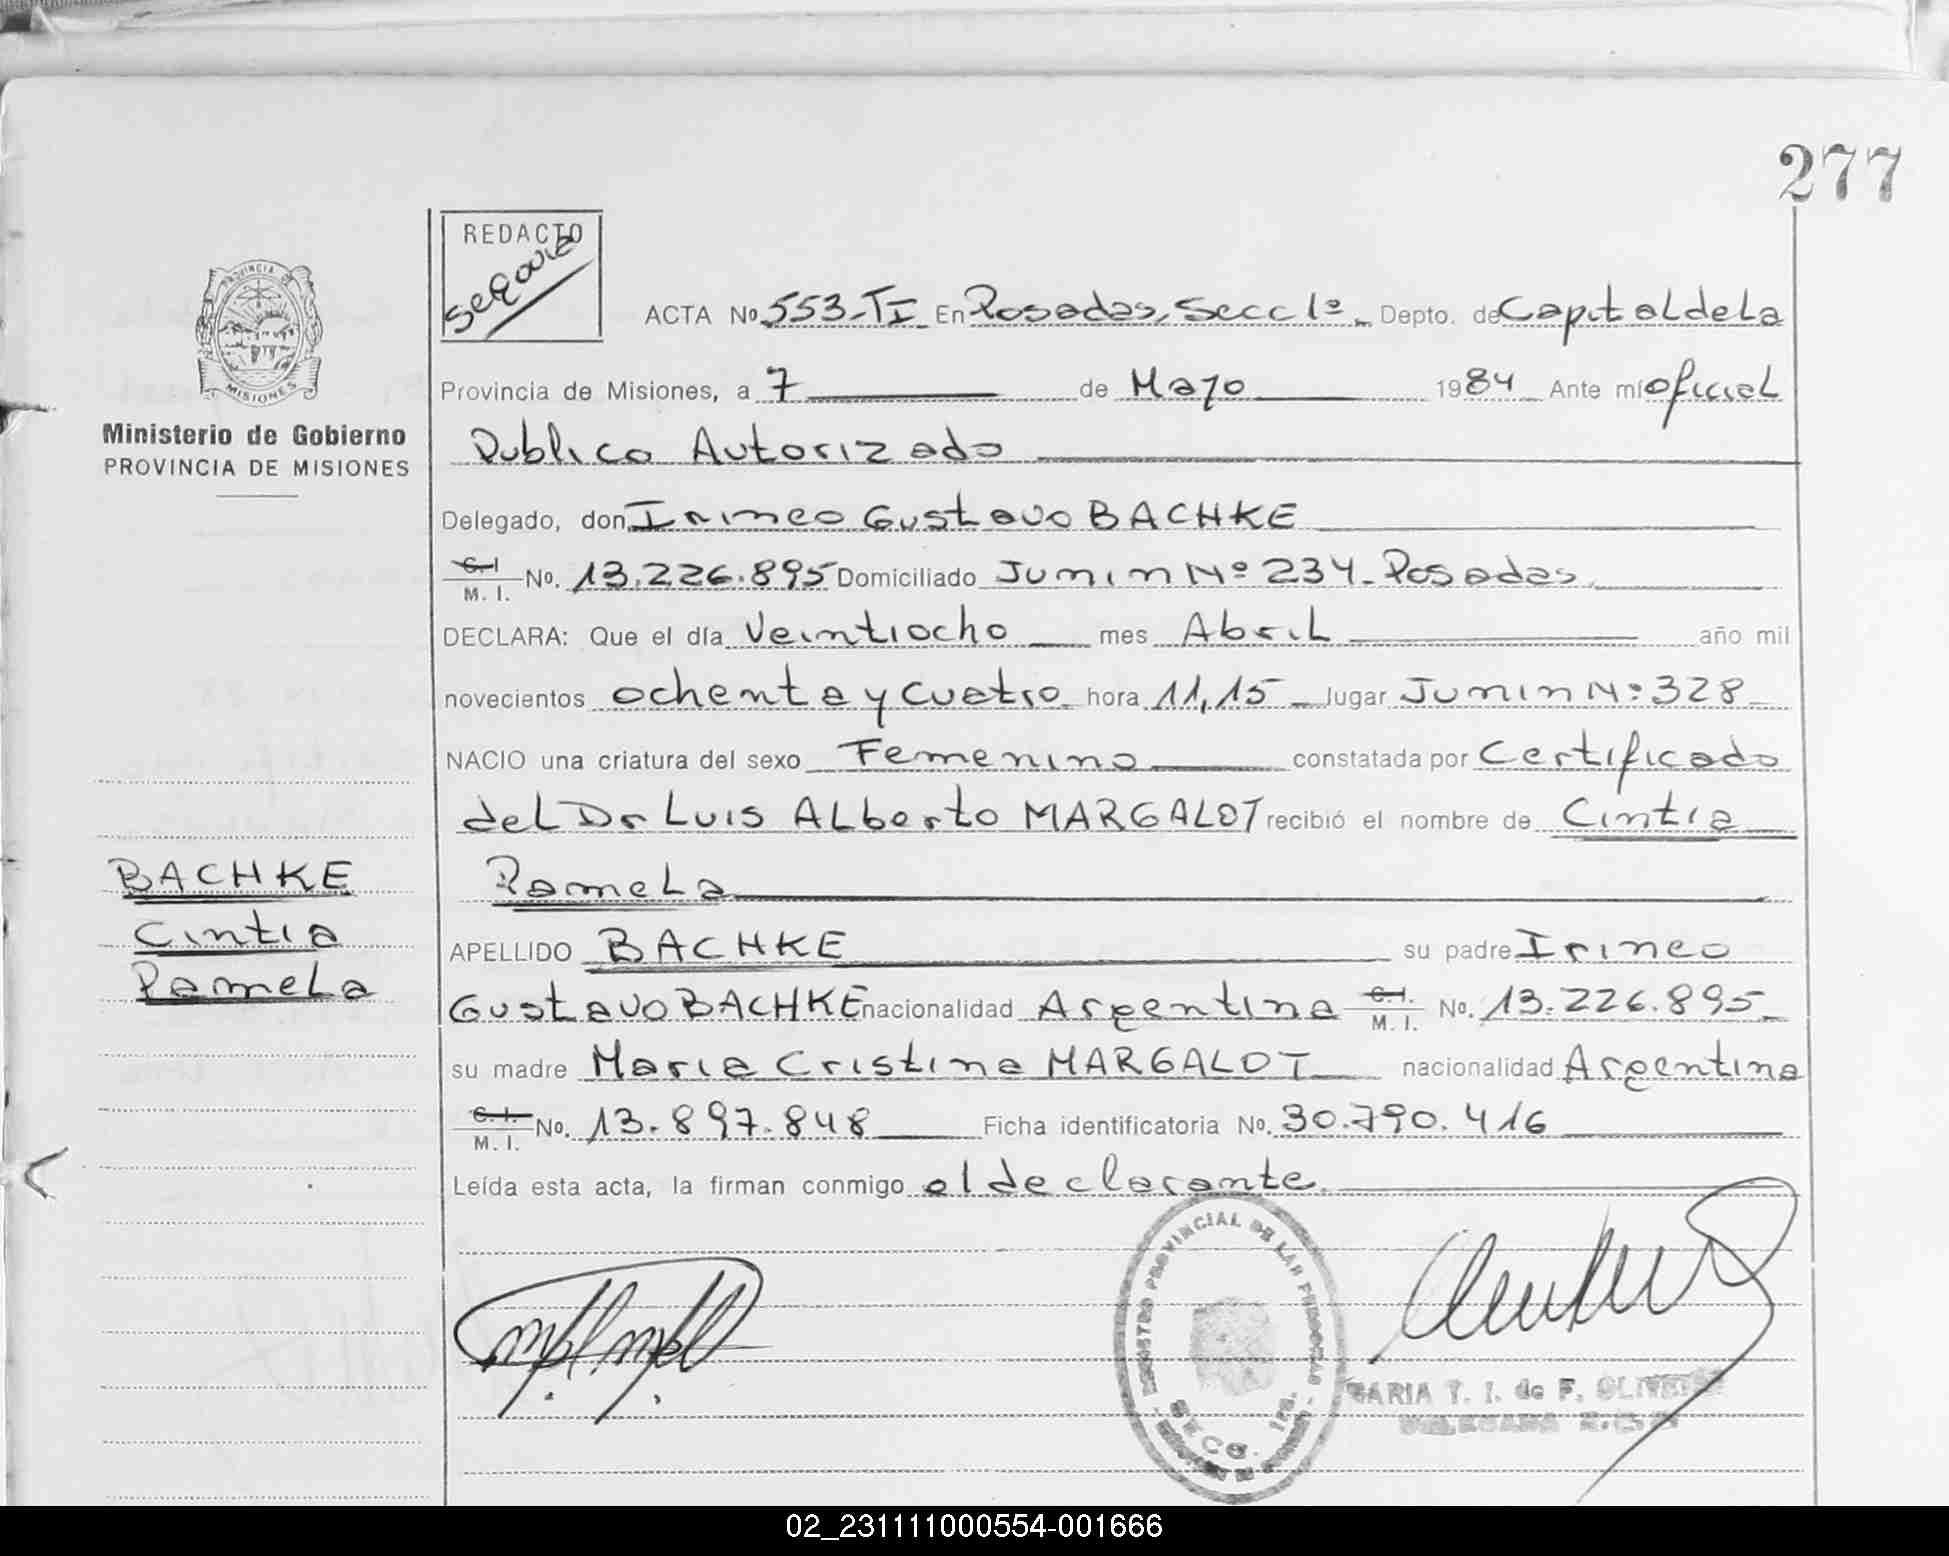 277
REDACTO
PROVINCIA DE
MISIONES
Ministerio de Gobierno
PROVINCIA DE MISIONES
ACTA No 553-TI En Posadas, Secc 1ª Depto. de Capital de la
Provincia de Misiones, a 7 de Mayo 1984 Ante mí oficial
Publico Autorizado
Delegado, don Irineo Gustavo BACHKE
C. I. M. I. No. 13.226.895 Domiciliado Junin Nº 234 - Posadas
DECLARA: Que el día Veintiocho mes Abril año mil
novecientos ochenta y cuatro hora 11,15 lugar Junin Nº 328
NACIO una criatura del sexo Femenino constatada por Certificado
del Dr Luis Alberto MARGALOT recibió el nombre de Cintia
Pamela
BACHKE
Cintia
Pamela
APELLIDO BACHKE su padre Irineo
Gustavo BACHKE nacionalidad Argentina C. I. M. I. No. 13.226.895
su madre Maria Cristina MARGALOT nacionalidad Argentina
C. I. M. I. No. 13.897.848 Ficha identificatoria No. 30.790.416
Leída esta acta, la firman conmigo el declarante.
REGISTRO PROVINCIAL DE LAS PERSONAS
SECC. 1ra.
MARIA T. I. de F. OLIVEIRA
DELEGADA
02_231111000554-001666